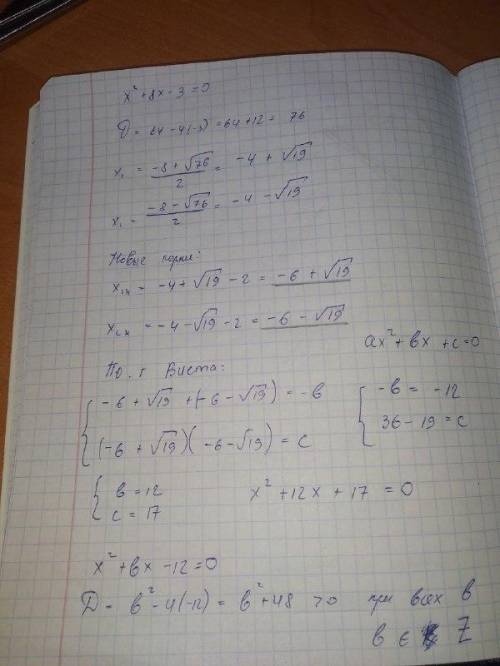 x² + 8x - 3 = 0
D = 64 - 4(-3) = 64 + 12 = 76
x₁ = (-8 + √76)/2 = -4 + √19
x₁ = (-8 - √76)/2 = -4 - √19
Новые корни:
x₁ₙ = -4 + √19 - 2 = -6 + √19
x₂ₙ = -4 - √19 - 2 = -6 - √19
ax² + bx + c = 0
По т Виета:
{ -6 + √19 + (-6 - √19) = -b
(-6 + √19)(-6 - √19) = c
{ -b = -12
36 - 19 = c
{ b = 12
c = 17
x² + 12x + 17 = 0
x² + bx - 12 = 0
D = b² - 4(-12) = b² + 48 > 0 при всех b
b ∈ Z